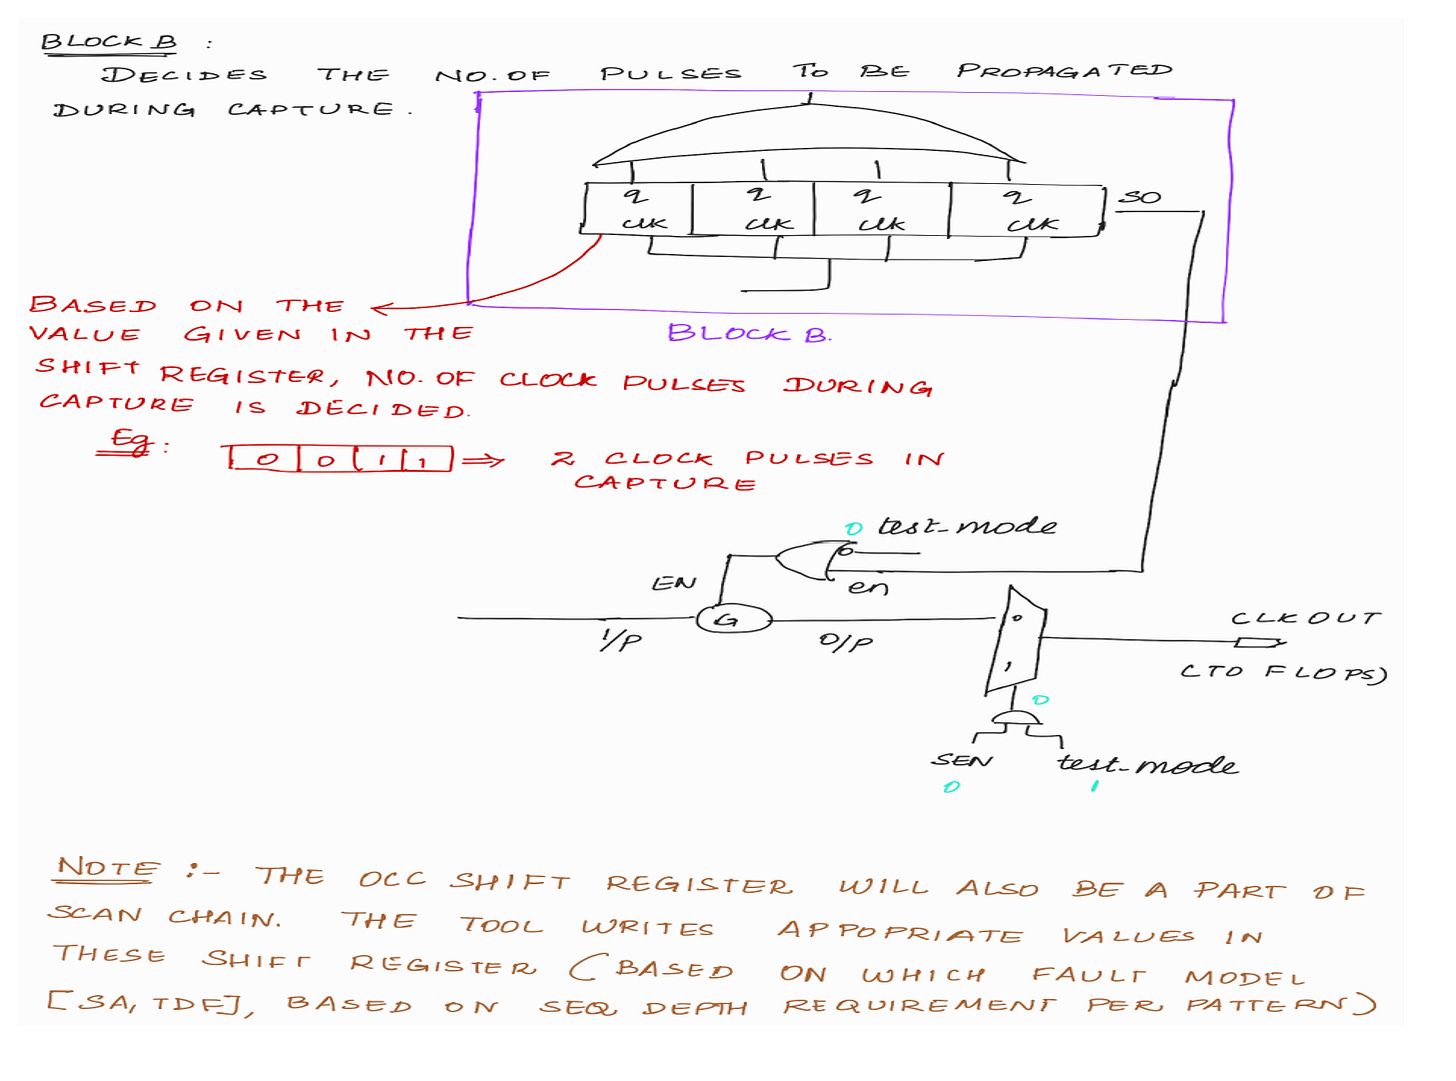 BLOCK B :
DECIDES THE NO. OF PULSES TO BE PROPAGATED
DURING CAPTURE.
q q q q
clk clk clk clk
SO
BLOCK B.
BASED ON THE
VALUE GIVEN IN THE
SHIFT REGISTER, NO. OF CLOCK PULSES DURING
CAPTURE IS DECIDED.
Eg :
0 0 1 1 ⇒ 2 CLOCK PULSES IN
CAPTURE
0 test-mode
EN
en
G
I/P
O/P
0
1
CLKOUT
(TO FLOPS)
0
SEN
test-mode
0
1
NOTE :- THE OCC SHIFT REGISTER WILL ALSO BE A PART OF
SCAN CHAIN. THE TOOL WRITES APPOPRIATE VALUES IN
THESE SHIFT REGISTER (BASED ON WHICH FAULT MODEL
[SA, TDF], BASED ON SEQ DEPTH REQUIREMENT PER PATTERN)